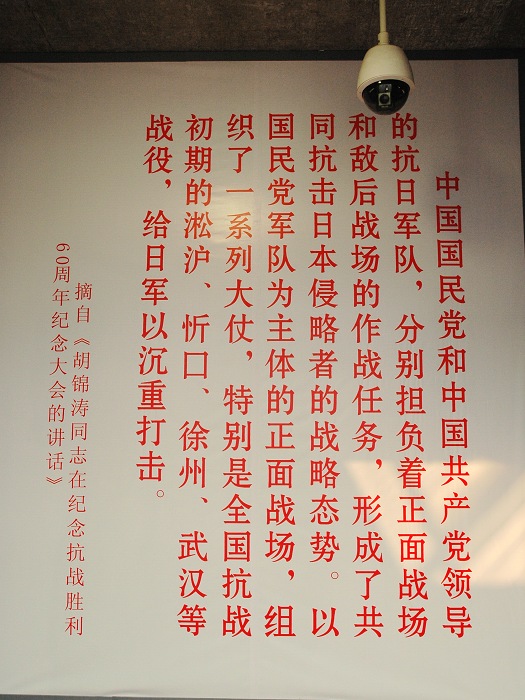 中国国民党和中国共产党领导
的抗日军队，分别担负着正面战场
和敌后战场的作战任务，形成了共
同抗击日本侵略者的战略态势。以
国民党军队为主体的正面战场，组
织了一系列大仗，特别是全国抗战
初期的淞沪、忻口、徐州、武汉等
战役，给日军以沉重打击。
摘自《胡锦涛同志在纪念抗战胜利
60周年纪念大会的讲话》